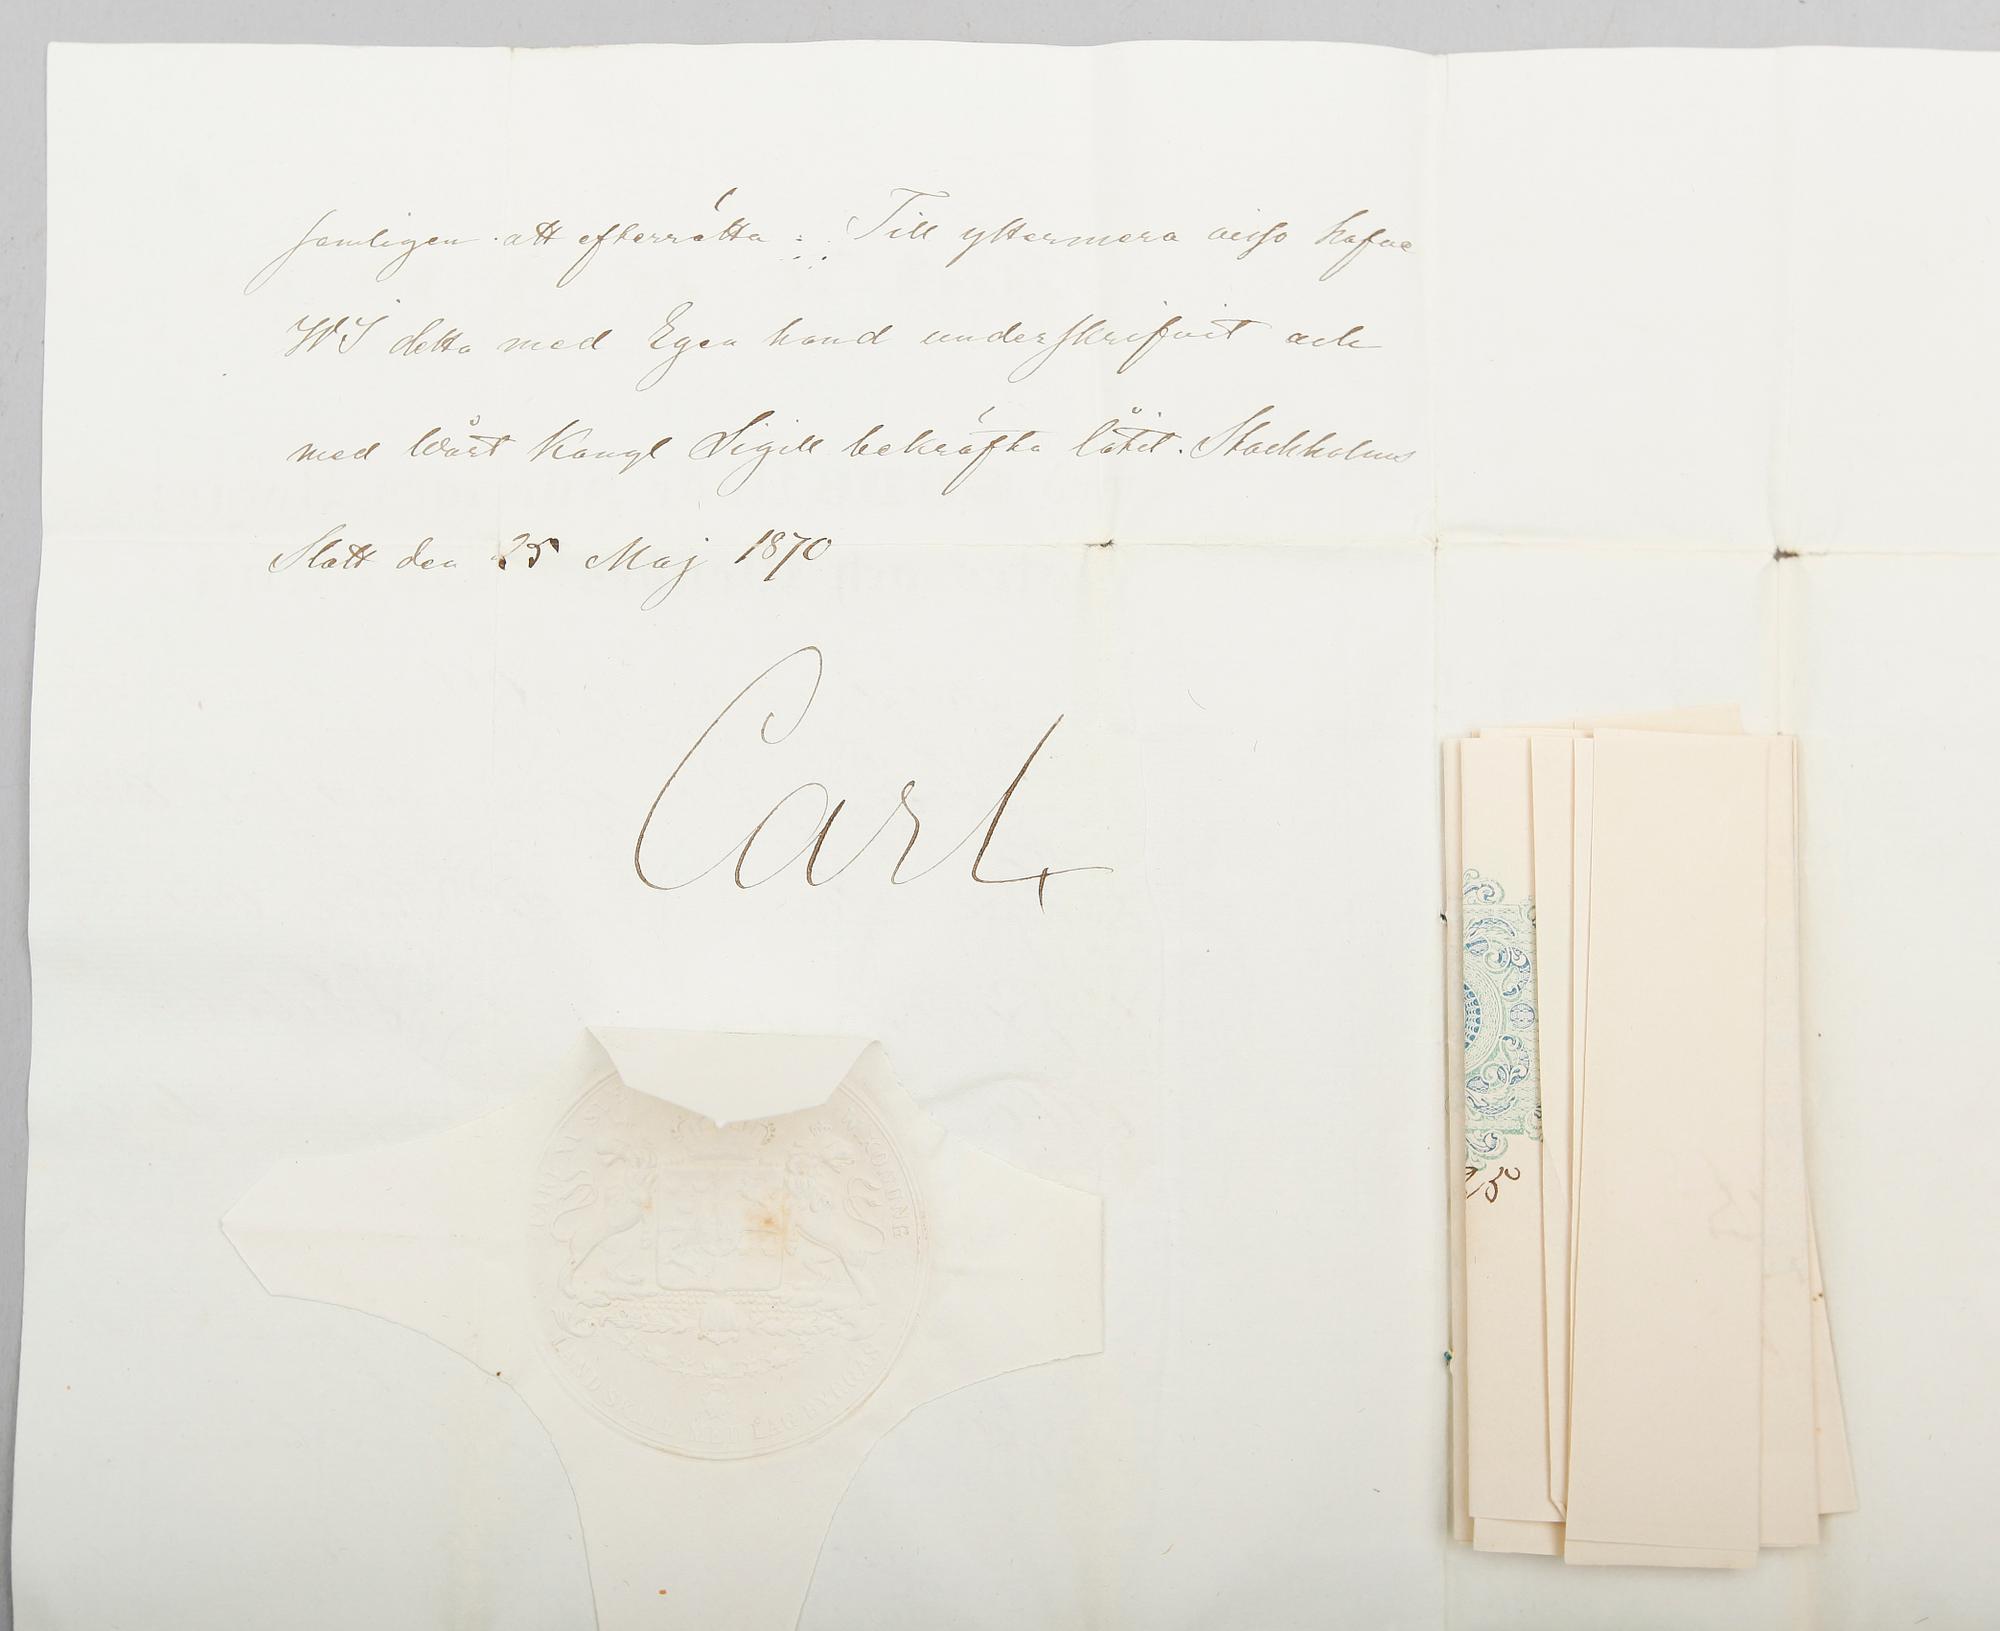 samligen att efterrätta. Till yttermera visso hafve
WI detta med Egen hand underskrifvit och
med Wårt Kongl Sigill bekräfta låtit. Stockholms
Slott den 25 Maj 1870
Carl
KONUNG
LAND SKALL MED LAG BYGGAS